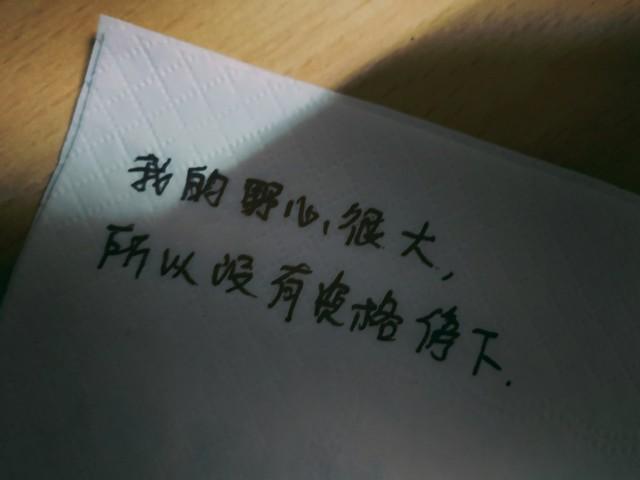 我的野心很大,
所以没有资格停下.